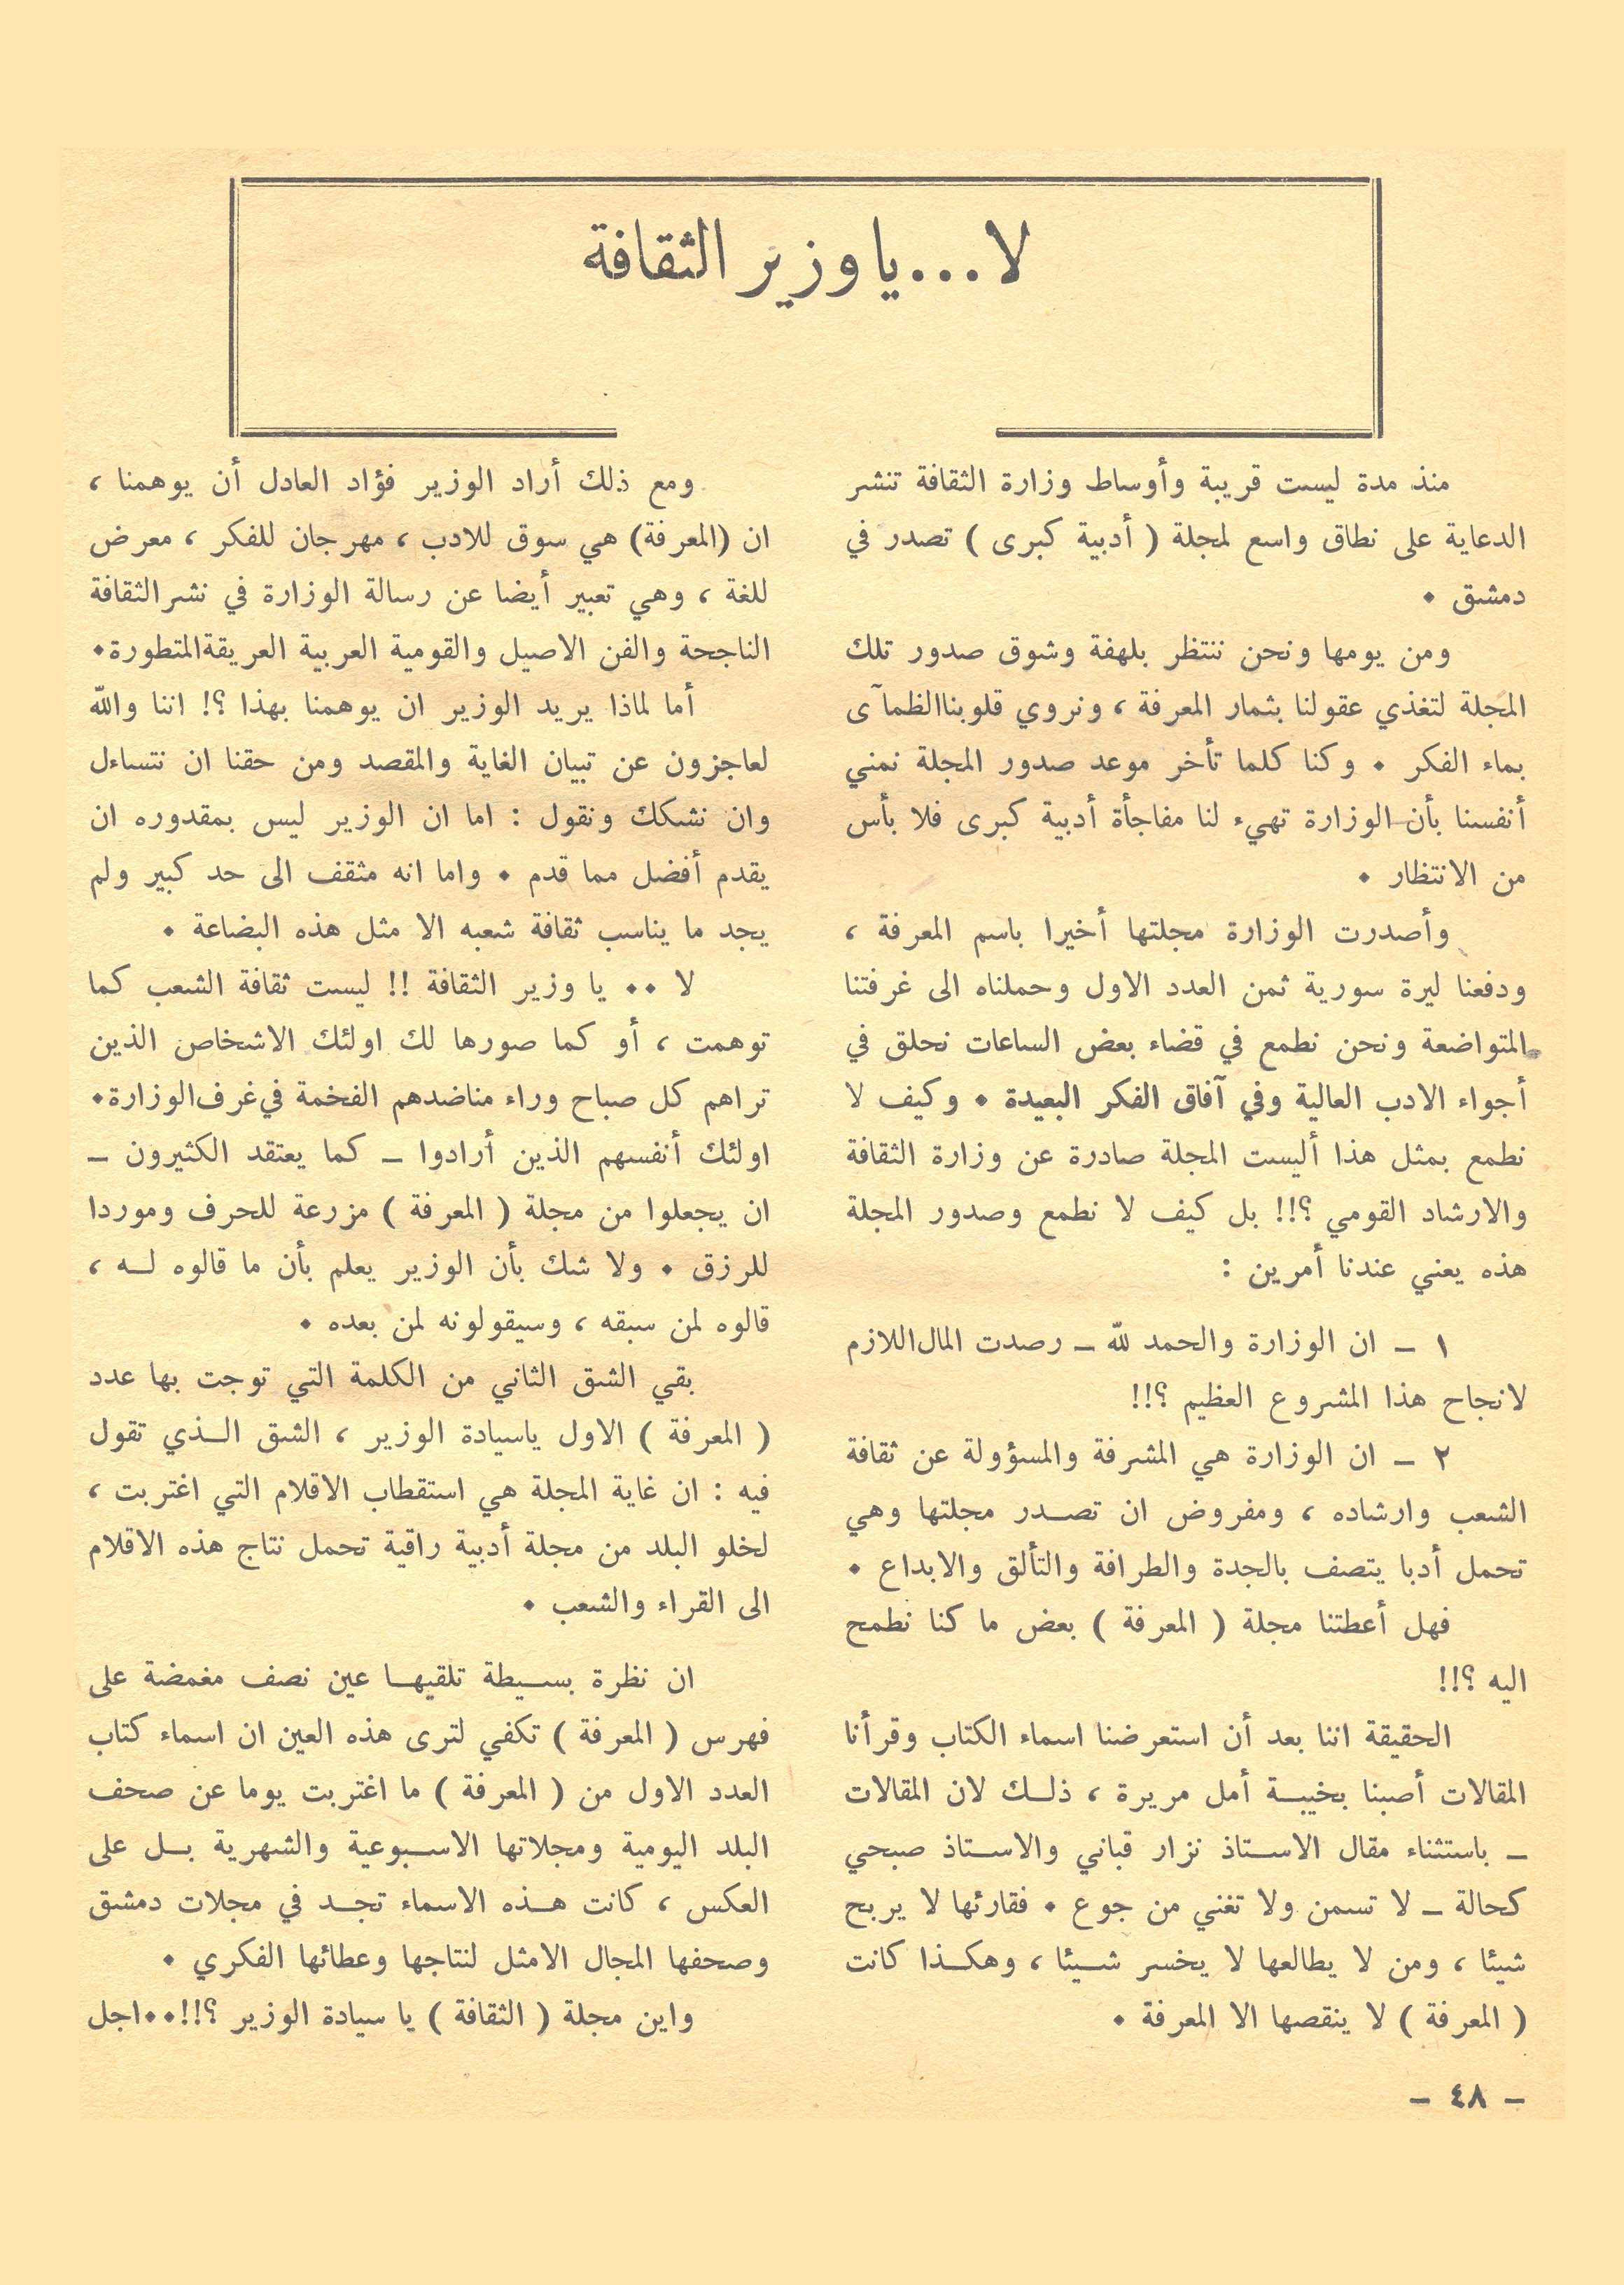 لا...يا وزير الثقافة
منذ مدة ليست قريبة وأوساط وزارة الثقافة تنشر
الدعاية على نطاق واسع لمجلة ( أدبية كبرى ) تصدر في
دمشق .
ومن يومها ونحن ننتظر بلهفة وشوق صدور تلك
المجلة لتغذي عقولنا بثمار المعرفة ، ونروي قلوبنا الظمآى
بماء الفكر . وكنا كلما تأخر موعد صدور المجلة نمني
أنفسنا بأن الوزارة تهيء لنا مفاجأة أدبية كبرى فلا بأس
من الانتظار .
وأصدرت الوزارة مجلتها أخيرا باسم المعرفة ،
ودفعنا ليرة سورية ثمن العدد الاول وحملناه الى غرفتنا
المتواضعة ونحن نطمع في قضاء بعض الساعات نحلق في
أجواء الادب العالية وفي آفاق الفكر البعيدة . وكيف لا
نطمع بمثل هذا أليست المجلة صادرة عن وزارة الثقافة
والارشاد القومي ؟!! بل كيف لا نطمع وصدور المجلة
هذه يعني عندنا أمرين :
١ ـ ان الوزارة والحمد لله ـ رصدت المال اللازم
لانجاح هذا المشروع العظيم ؟!!
٢ ـ ان الوزارة هي المشرفة والمسؤولة عن ثقافة
الشعب وارشاده ، ومفروض ان تصـدر مجلتها وهي
تحمل أدبا يتصف بالجدة والطرافة والتألق والابداع .
فهل أعطتنا مجلة ( المعرفة ) بعض ما كنا نطمح
اليه ؟!!
الحقيقة اننا بعد أن استعرضنا اسماء الكتاب وقرأنا
المقالات أصبنا بخيبـة أمل مريرة ، ذلـك لان المقالات
ـ باستثناء مقال الاسـتاذ نزار قباني والاسـتاذ صبحي
كحالة ـ لا تسمن ولا تغني من جوع . فقارئها لا يربح
شيئا ، ومن لا يطالعها لا يخسر شـيئا ، وهكـذا كانت
( المعرفة ) لا ينقصها الا المعرفة .
ومع ذلك أراد الوزير فؤاد العادل أن يوهمنا ،
ان (المعرفة) هي سوق للادب ، مهرجان للفكر ، معرض
للغة ، وهي تعبير أيضا عن رسالة الوزارة في نشر الثقافة
الناجحة والفن الاصيل والقومية العربية العريقة المتطورة.
أما لماذا يريد الوزير ان يوهمنا بهذا ؟! اننا والله
لعاجزون عن تبيان الغاية والمقصد ومن حقنا ان نتساءل
وان نشكك ونقول : اما ان الوزير ليس بمقدوره ان
يقدم أفضل مما قدم . واما انه مثقف الى حد كبير ولم
يجد ما يناسب ثقافة شعبه الا مثل هذه البضاعة .
لا .. يا وزير الثقافة !! ليست ثقافة الشعب كما
توهمت ، أو كما صورها لك اولئك الاشخاص الذين
تراهم كل صباح وراء مناضدهم الفخمة في غرف الوزارة.
اولئك أنفسهم الذين أرادوا ـ كما يعتقد الكثيرون ـ
ان يجعلوا من مجلة ( المعرفة ) مزرعة للحرف وموردا
للرزق . ولا شك بأن الوزير يعلم بأن ما قالوه لـه ،
قالوه لمن سبقه ، وسيقولونه لمن بعده .
بقي الشق الثاني من الكلمة التي توجت بها عدد
( المعرفة ) الاول ياسيادة الوزير ، الشق الـذي تقول
فيه : ان غاية المجلة هي استقطاب الاقلام التي اغتربت ،
لخلو البلد من مجلة أدبية راقية تحمل نتاج هذه الاقلام
الى القراء والشعب .
ان نظرة بسـيطة تلقيهـا عين نصف مغمضة على
فهرس ( المعرفة ) تكفي لترى هذه العين ان اسماء كتاب
العدد الاول من ( المعرفة ) ما اغتربت يوما عن صحف
البلد اليومية ومجلاتها الاسـبوعية والشهرية بـل على
العكس ، كانت هـذه الاسماء تجـد في مجلات دمشق
وصحفها المجال الامثل لنتاجها وعطائها الفكري .
واين مجلة ( الثقافة ) يا سيادة الوزير ؟!!..اجل
ـ ٤٨ ـ